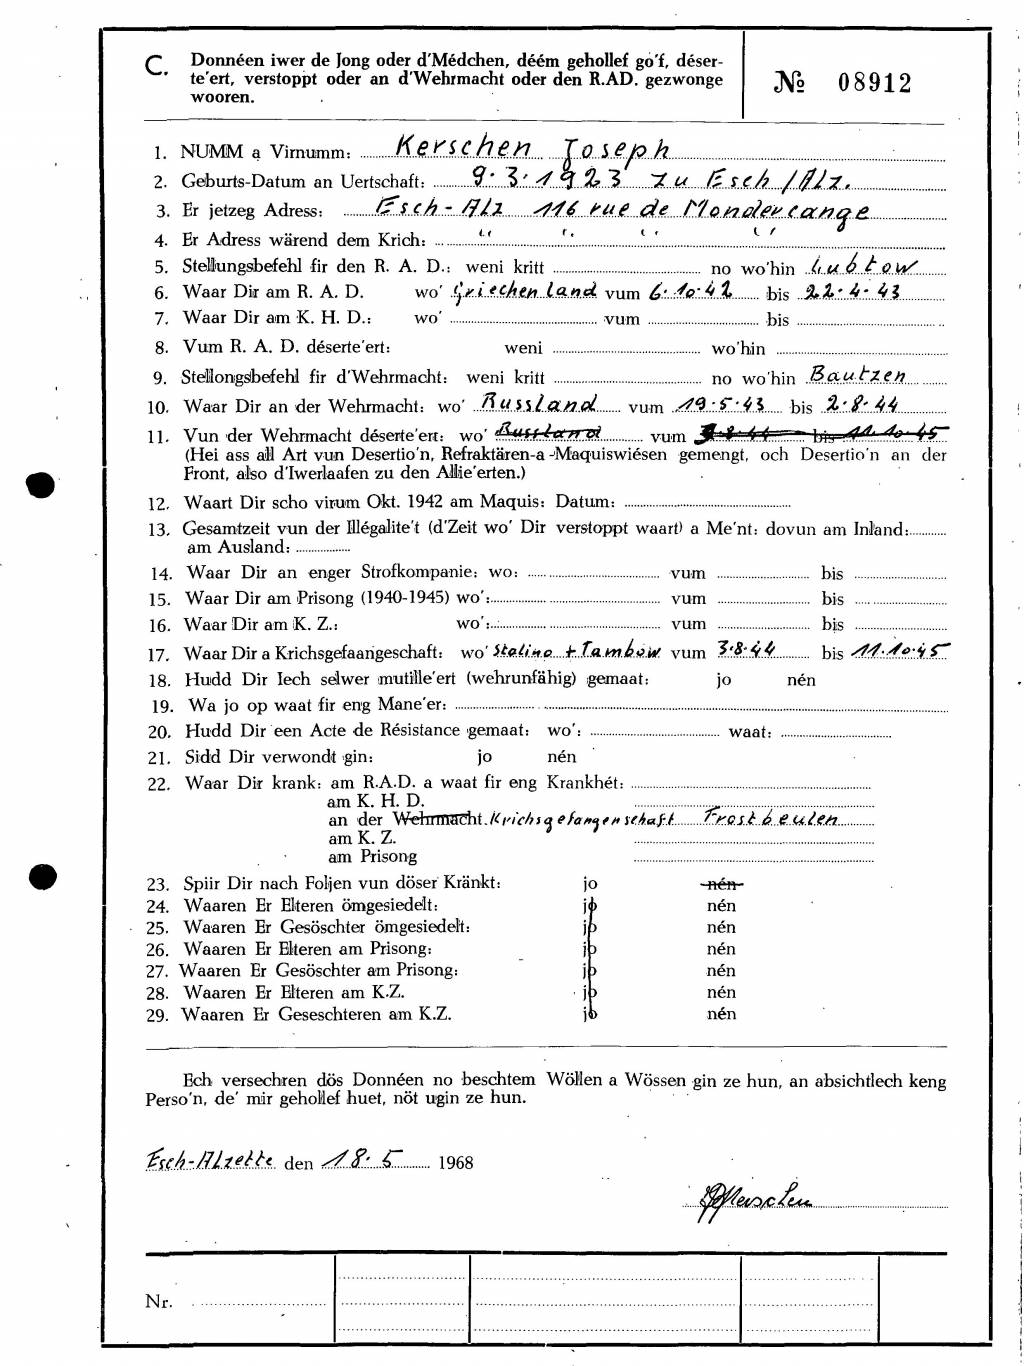 C. Donnéen iwer de Jong oder d'Médchen, déém gehollef go'f, déser-
te'ert, verstoppt oder an d'Wehrmacht oder den R.AD. gezwonge
wooren.
№ 08912
1. NUMM a Virnumm: Kerschen Joseph
2. Geburts-Datum an Uertschaft: 9.3.1923 zu Esch/Alz.
3. Er jetzeg Adress: Esch-Alz 116 rue de Mondercange
4. Er Adress wärend dem Krich: " " " "
5. Stellungsbefehl fir den R. A. D.: weni kritt no wo'hin Lubtow
6. Waar Dir am R. A. D. wo' Griechenland vum 6.10.42 bis 22.4.43
7. Waar Dir am K. H. D.: wo' vum bis
8. Vum R. A. D. déserte'ert: weni wo'hin
9. Stellongsbefehl fir d'Wehrmacht: weni kritt no wo'hin Bautzen
10. Waar Dir an der Wehrmacht: wo' Russland vum 19.5.43 bis 2.8.44
11. Vun der Wehrmacht déserte'ert: wo' Russland vum 3.8.44 bis 11.10.45
(Hei ass all Art vun Desertio'n, Refraktären-a-Maquiswiésen gemengt, och Desertio'n an der
Front, also d'Iwerlaafen zu den Allie'erten.)
12. Waart Dir scho virum Okt. 1942 am Maquis: Datum:
13. Gesamtzeit vun der Illégalite't (d'Zeit wo' Dir verstoppt waart) a Me'nt: dovun am Inland:
am Ausland:
14. Waar Dir an enger Strofkompanie: wo: vum bis
15. Waar Dir am Prisong (1940-1945) wo': vum bis
16. Waar Dir am K. Z.: wo': vum bis
17. Waar Dir a Krichsgefaangeschaft: wo' Stalino + Tambow vum 3.8.44 bis 11.10.45
18. Hudd Dir Iech selwer mutille'ert (wehrunfähig) gemaat: jo nén
19. Wa jo op waat fir eng Mane'er:
20. Hudd Dir een Acte de Résistance gemaat: wo': waat:
21. Sidd Dir verwondt gin: jo nén
22. Waar Dir krank: am R.A.D. a waat fir eng Krankhét:
am K. H. D.
an der Wehrmacht. Krichsgefangenschaft Frostbeulen
am K. Z.
am Prisong
23. Spiir Dir nach Foljen vun döser Kränkt: jo nén
24. Waaren Er Elteren ömgesiedelt: jo nén
25. Waaren Er Gesöschter ömgesiedelt: jo nén
26. Waaren Er Elteren am Prisong: jo nén
27. Waaren Er Gesöschter am Prisong: jo nén
28. Waaren Er Elteren am K.Z. jo nén
29. Waaren Er Geseschteren am K.Z. jo nén
Ech versechren dös Donnéen no beschtem Wöllen a Wössen gin ze hun, an absichtlech keng
Perso'n, de' mir gehollef huet, nöt ugin ze hun.
Esch-Alzette den 18.5 1968
Kerschen
Nr.